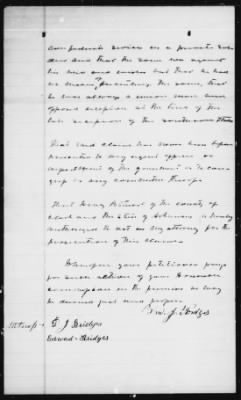 Confederate service as a private sol-
diers and that the same was against
his will and wishes but that he had
no means of preventing the same, that
he was always a union man and
opposed secession at the time of the
late secession of the southern States
That said claim has never been before
presented to any agent officer or
department of the government or to Con-
gress or any committee thereof
That Henry of the County of
and the State of Arkansas is hereby
authorized to act as my attorney for the
prosecution of this claim.
Wherefore your petitioner prays
for such action of your Honorable
commission in the premises as may
be deemed just and proper.
Wm. J. Bridges
Witness- T J Bridges
Edward Bridges